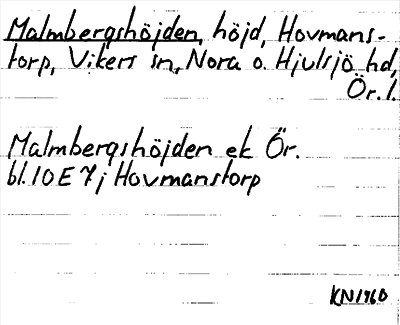 Malmbergshöjden, höjd, Hovmans-
torp, Vikers sn, Nora o. Hjulsjö hd,
Ör. l.
Malmbergshöjden ek Ör.
bl. 10 E 7 j Hovmanstorp
KN1960